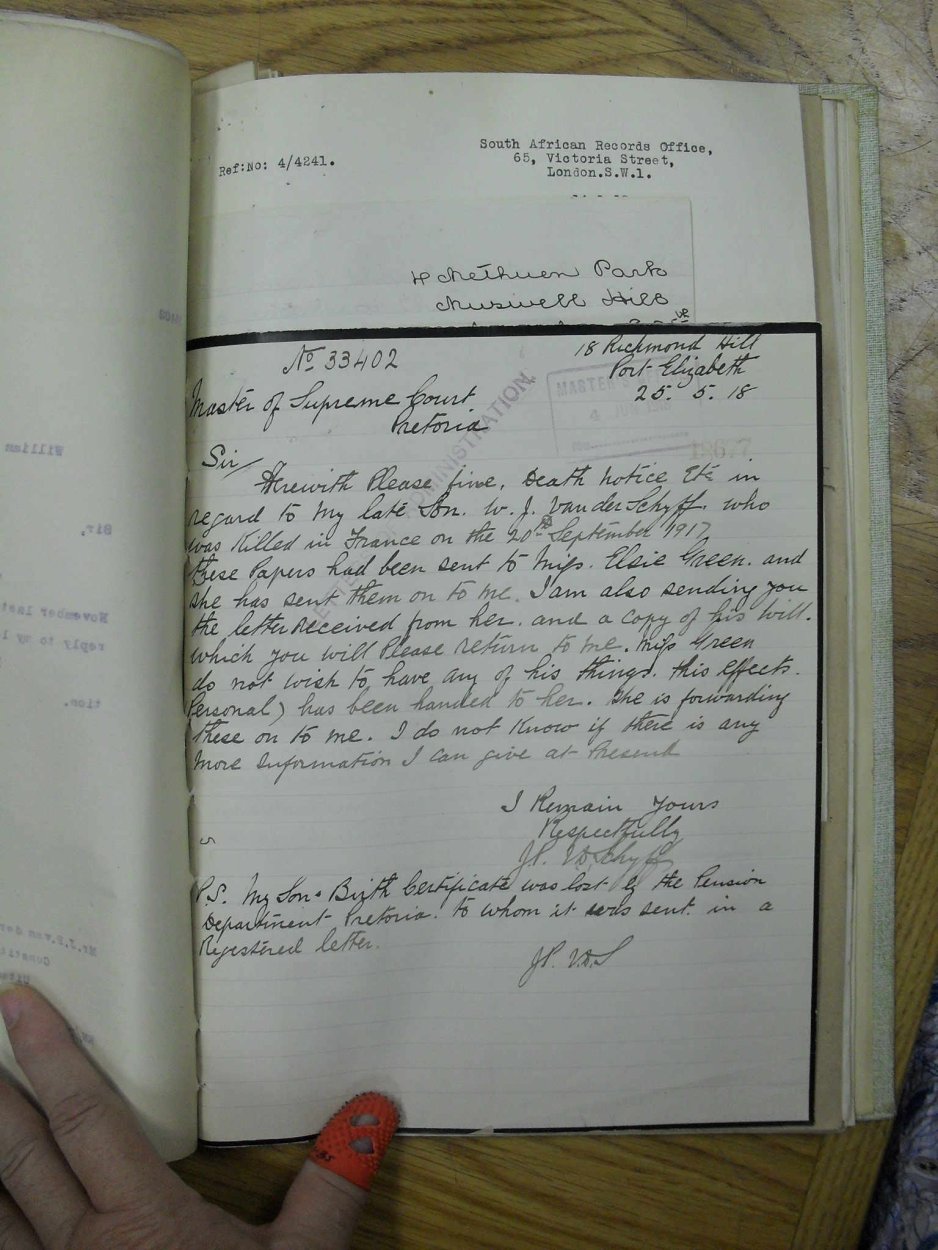 Ref:No: 4/4241.
South African Records Office,
65, Victoria Street,
London.S.W.1.
4 Methuen Park
Muswell Hill
No 33402
18 Richmond Hill
Port Elizabeth
25. 5. 18
Master of Supreme Court
Pretoria
MASTER'S
4 JUN 1918
18677
Sir/
Herewith Please fine, Death Notice Etc in
regard to My late Son. W. J. Van der Schyff who
was Killed in France on the 20th September 1917
these Papers had been sent to Miss. Elsie Green. and
she has sent them on to me. I am also sending you
the letter received from her. and a copy of his will.
which you will Please return to me. Miss Green
do not wish to have any of his things. this effects.
Personal) has been handed to her. she is forwarding
these on to me. I do not Know if there is any
More Information I can give at Present
I Remain Yours
Respectfully
J.P. V.D. Schyff
P.S. My Son's Birth Certificate was lost by the Pension
Department Pretoria. to whom it was sent. in a
Registered letter.
J.P. V.D.S
ADMINISTRATION.
William
Sir,
November last
reply to my l
tion.
Mr.J.P.van der